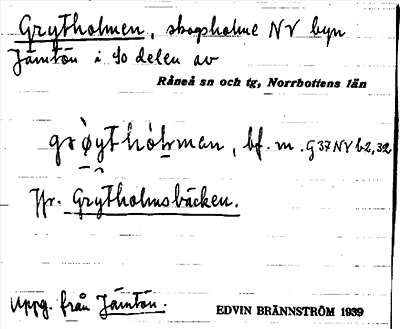 Grytholmen, skogsholme NV byn
Jämtön i So delen av
Råneå sn och tg, Norrbottens län
grøythòlman, bf. m. G37NVb2,32
Jfr. Grytholmsbäcken.
Uppg. från Jämtön.
EDVIN BRÄNNSTRÖM 1939